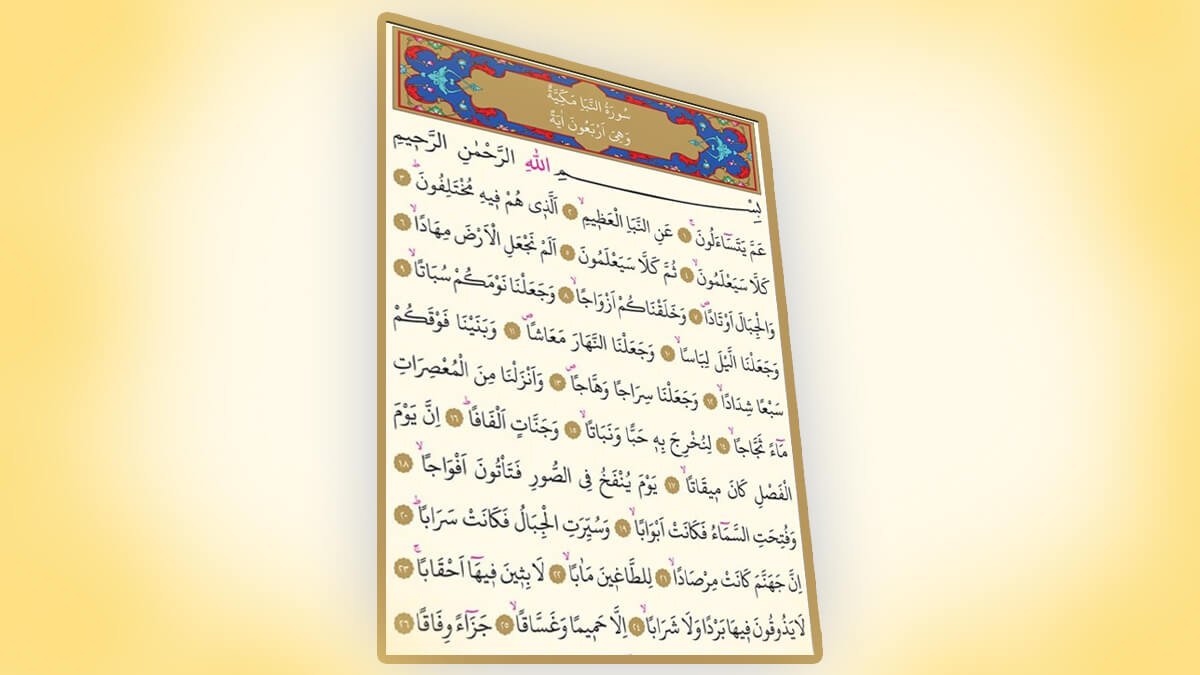 سُورَةُ النَّبَاِ مَكِّيَّةٌ
وَهِيَ اَرْبَعُونَ اٰيَةً
بِسْمِ اللّٰهِ الرَّحْمٰنِ الرَّحٖيمِ
عَمَّ يَتَسَٓاءَلُونَۚ ١ عَنِ النَّبَاِ الْعَظٖيمِۙ ٢ اَلَّذٖى هُمْ فٖيهِ مُخْتَلِفُونَۜ ٣
كَلَّا سَيَعْلَمُونَۙ ٤ ثُمَّ كَلَّا سَيَعْلَمُونَ ٥ اَلَمْ نَجْعَلِ الْاَرْضَ مِهَادًاۙ ٦
وَالْجِبَالَ اَوْتَادًاۖ ٧ وَخَلَقْنَاكُمْ اَزْوَاجًاۙ ٨ وَجَعَلْنَا نَوْمَكُمْ سُبَاتًاۙ ٩
وَجَعَلْنَا الَّيْلَ لِبَاسًاۙ ١٠ وَجَعَلْنَا النَّهَارَ مَعَاشًاۖ ١١ وَبَنَيْنَا فَوْقَكُمْ
سَبْعًا شِدَادًاۙ ١٢ وَجَعَلْنَا سِرَاجًا وَهَّاجًاۖ ١٣ وَاَنْزَلْنَا مِنَ الْمُعْصِرَاتِ
مَٓاءً ثَجَّاجًاۙ ١٤ لِنُخْرِجَ بِهٖ حَبًّا وَنَبَاتًاۙ ١٥ وَجَنَّاتٍ اَلْفَافًاۜ ١٦ اِنَّ يَوْمَ
الْفَصْلِ كَانَ مٖيقَاتًاۙ ١٧ يَوْمَ يُنْفَخُ فِى الصُّورِ فَتَاْتُونَ اَفْوَاجًاۙ ١٨
وَفُتِحَتِ السَّمَٓاءُ فَكَانَتْ اَبْوَابًاۙ ١٩ وَسُيِّرَتِ الْجِبَالُ فَكَانَتْ سَرَابًاۜ ٢٠
اِنَّ جَهَنَّمَ كَانَتْ مِرْصَادًاۙ ٢١ لِلطَّاغٖينَ مَاٰبًاۙ ٢٢ لَابِثٖينَ فٖيهَٓا اَحْقَابًاۚ ٢٣
لَا يَذُوقُونَ فٖيهَا بَرْدًا وَلَا شَرَابًاۙ ٢٤ اِلَّا حَمٖيمًا وَغَسَّاقًاۙ ٢٥ جَزَٓاءً وِفَاقًا ٢٦